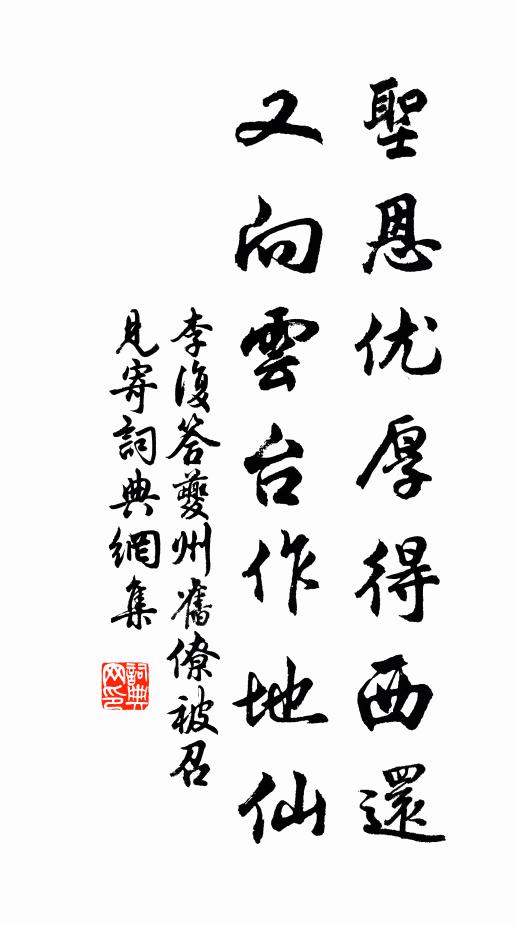 聖恩优厚得西還
又向雲台作地仙
李復答夔州舊僚被召
見寄詞典網集
詞典
网印